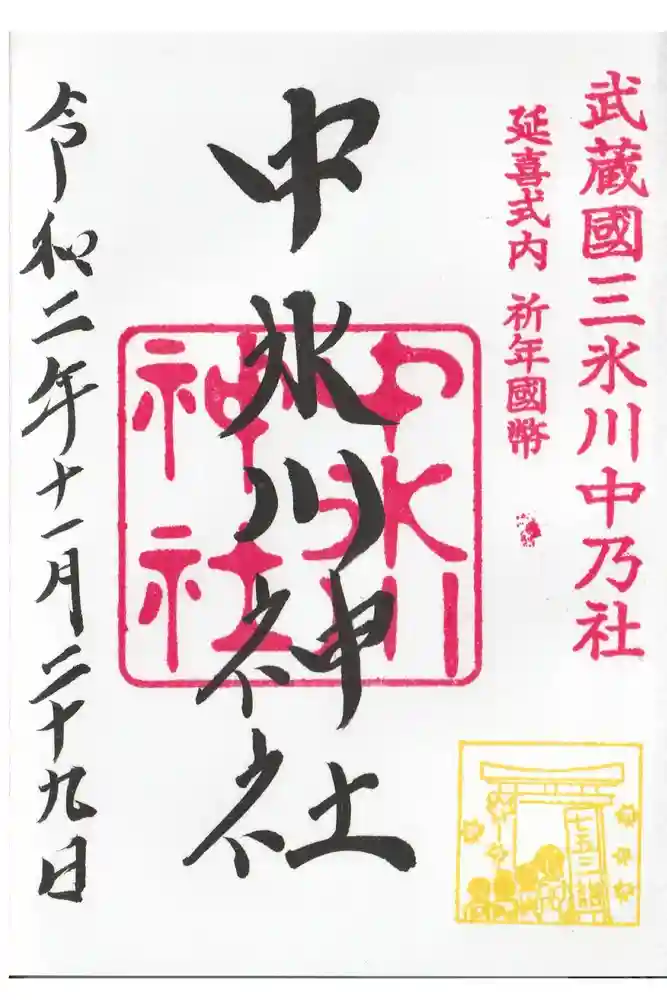 武蔵國三氷川中乃社
延喜式内 祈年國幣
中氷川神社
中氷川
神社
令和二年十一月二十九日
七五三詣